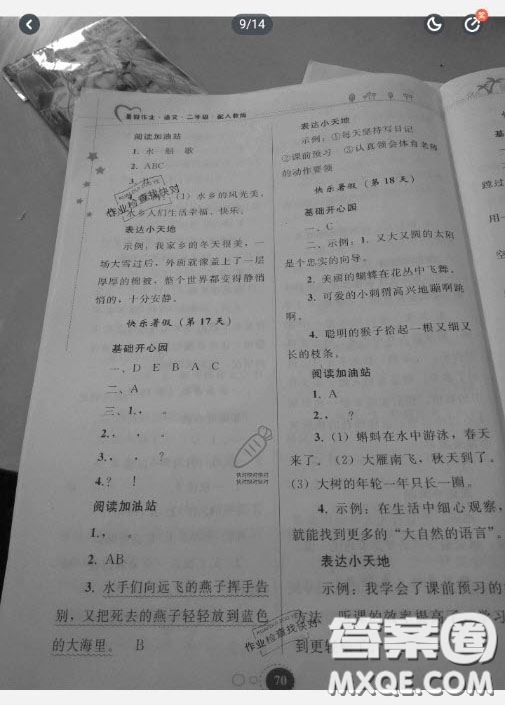 9/14
暑假作业·语文·二年级·配人教版
阅读加油站
1. 水 船 歌
2. ABC
3.
(1)水乡的风光美,
水乡人们生活幸福、快乐。
作业检查找快对
表达小天地
示例:我家乡的冬天很美,一
场大雪过后,外面就像盖上了一层
厚厚的棉被,整个世界都变得静悄
悄的,十分安静。
快乐暑假(第 17 天)
基础开心园
一、D E B A C
二、A
三、1. , 。
2. 。 。 。
3. , 。 ?
4. ? !
快对快对快对
快对快对快对
阅读加油站
1. , 。
2. AB
3. 水手们向远飞的燕子挥手告
别,又把死去的燕子轻轻放到蓝色
的大海里。 B
表达小天地
示例:①每天坚持写日记
②课前预习 ②认真领会体育老师
的动作要领
快乐暑假(第 18 天)
基础开心园
一、C
二、示例:1. 又大又圆的太阳
是个忠实的向导。
2. 美丽的蝴蝶在花丛中飞舞。
3. 可爱的小刺猬高兴地蹦啊跳
啊。
4. 聪明的猴子拾起一根又细又
长的枝条。
阅读加油站
1. A
2. 。 , ?
3. (1)蝌蚪在水中游泳,春天
来了。(2)大雁南飞,秋天到了。
(3)大树的年轮一年只长一圈。
4. 示例:在生活中细心观察,
就能找到更多的“大自然的语言”。
表达小天地
示例:我学会了课前预习的
方法,听课的效率提高了
到更
作业检查找快对
70
蹚过
用一
空
答案圈
MXQE.COM